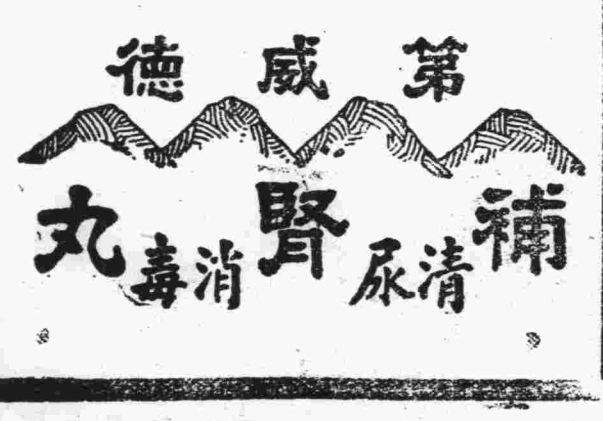 第威德
補腎丸
清尿消毒